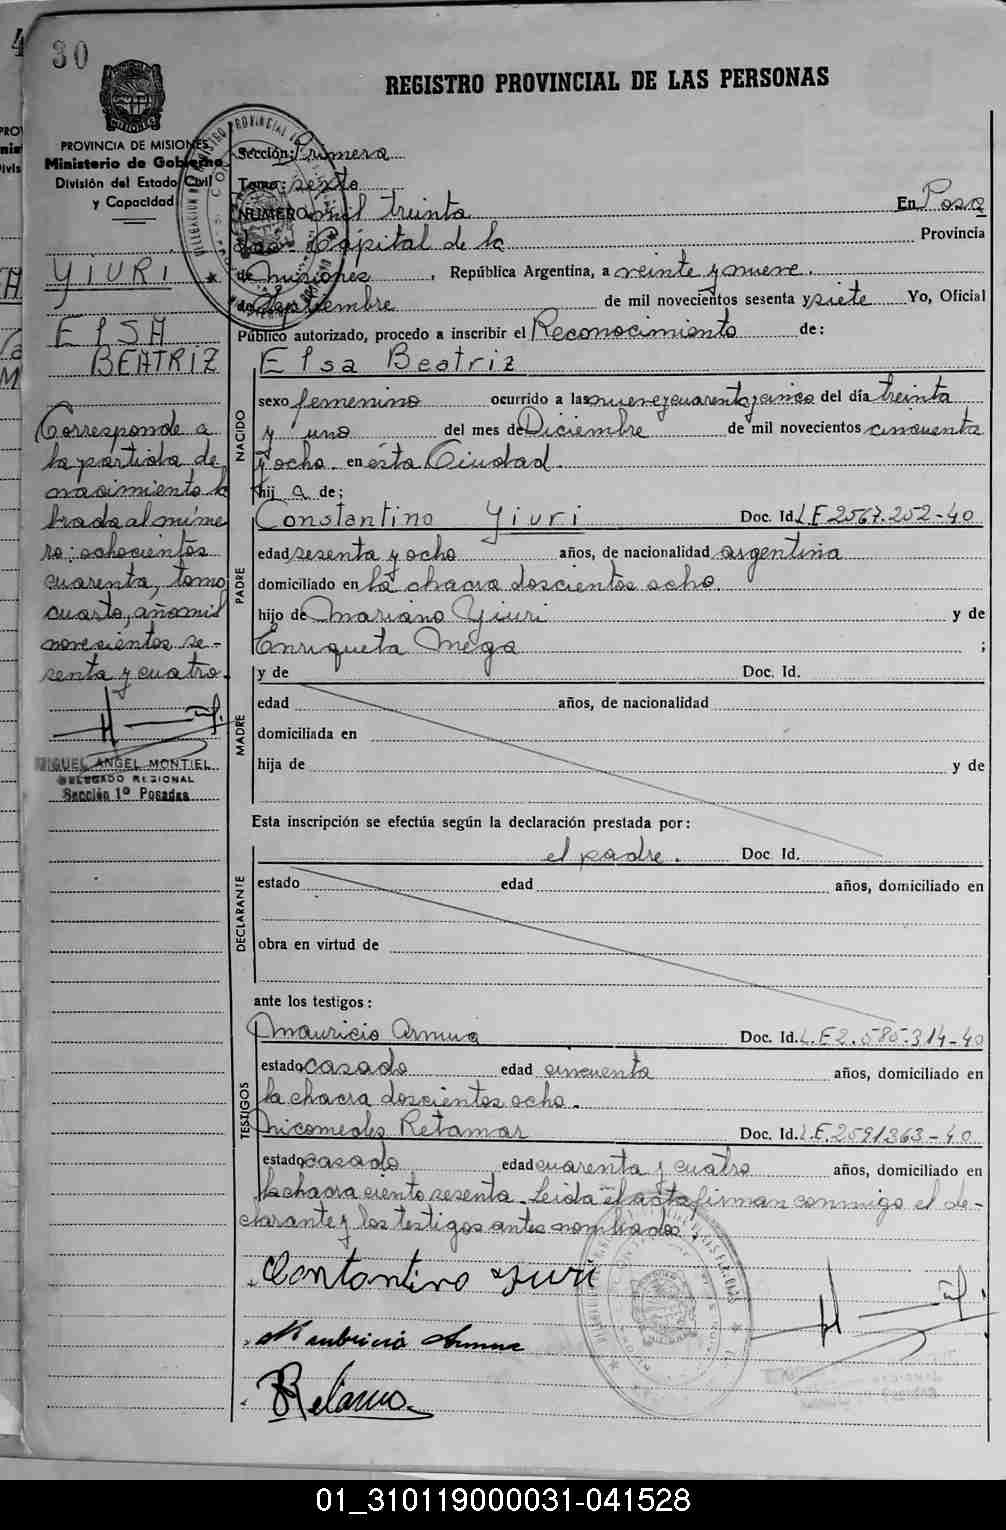 30
REGISTRO PROVINCIAL DE LAS PERSONAS
PROVINCIA DE MISIONES
Ministerio de Gobierno
División del Estado Civil
y Capacidad
YIURI
ELSA
BEATRIZ
Corresponde a
la partida de
nacimiento la
brada al núme
ro: ochocientos
cuarenta, tomo
cuarto, año mil
novecientos se-
senta y cuatro.
MIGUEL ANGEL MONTIEL
DELEGADO REGIONAL
Sección 1º Posadas
Sección: Primera
Tomo: sexto
NUMERO mil treinta En Posa
das Capital de la Provincia
de Misiones, República Argentina, a veinte y nueve.
de Septiembre de mil novecientos sesenta y siete Yo, Oficial
Público autorizado, procedo a inscribir el Reconocimiento de:
NACIDO
Elsa Beatriz
sexo femenino ocurrido a las nueve y cuarenta y cinco del día treinta
y uno del mes de Diciembre de mil novecientos cincuenta
y ocho en esta Ciudad.
hij a de;
PADRE
Constantino Yiuri Doc. Id. L E 2567.252-40
edad sesenta y ocho años, de nacionalidad argentina
domiciliado en la chacra doscientos ocho
hijo de Mariano Yiuri y de
Enriqueta Mega ;
MADRE
y de Doc. Id.
edad años, de nacionalidad
domiciliada en
hija de y de
Esta inscripción se efectúa según la declaración prestada por:
DECLARANTE
el padre. Doc. Id.
estado edad años, domiciliado en
obra en virtud de
ante los testigos:
TESTIGOS
Mauricio Armua Doc. Id. L.E 2.585.314-40
estado casado edad cincuenta años, domiciliado en
la chacra doscientos ocho.
Nicomedes Retamar Doc. Id. L.E. 2591363-40
estado casado edad cuarenta y cuatro años, domiciliado en
la chacra ciento sesenta. Leida el acta firman conmigo el de-
clarante y los testigos antes nombrados.
Contantino Yuri
Maubricio Armua
Retamar
01_310119000031-041528